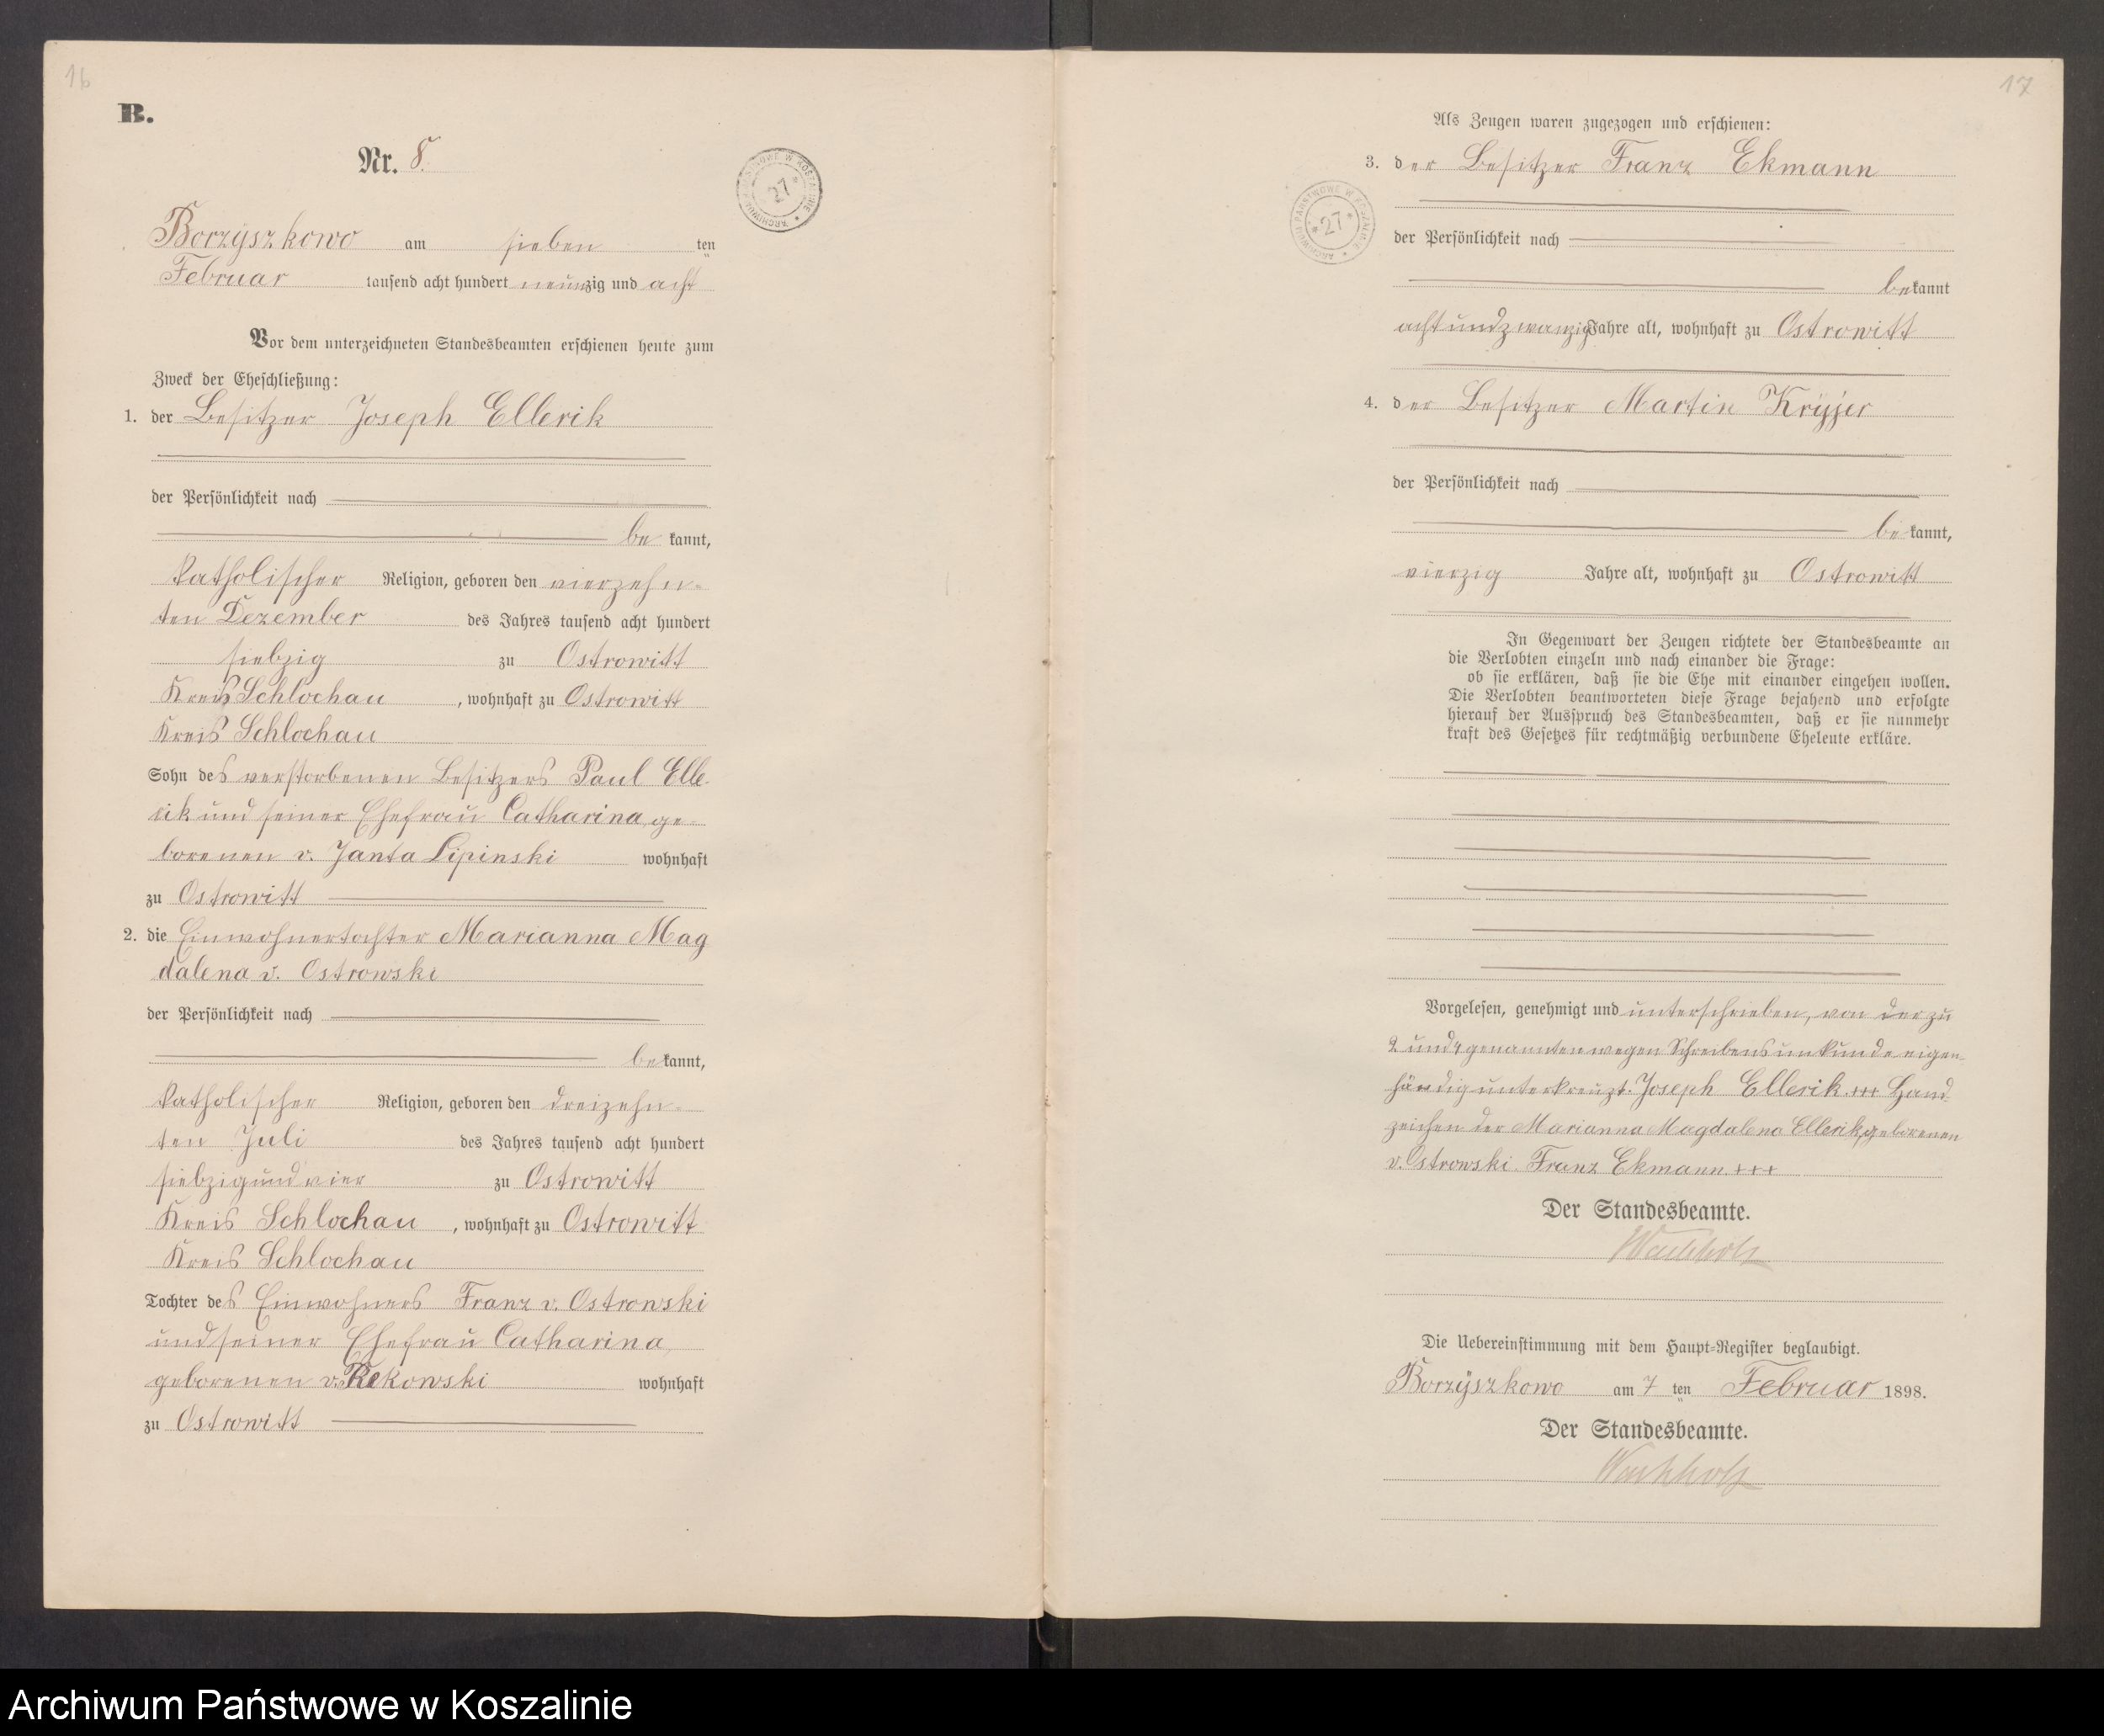 16
B.
Nr. 8.
ARCHIWUM PAŃSTWOWE W KOSZALINIE * 27 *
Borzyszkowo am sieben ten
Februar tausend acht hundert neunzig und acht
Vor dem unterzeichneten Standesbeamten erschienen heute zum
Zweck der Eheschließung:
1. der Besitzer Joseph Ellerik
der Persönlichkeit nach
be kannt,
katholischer Religion, geboren den vierzehn-
ten Dezember des Jahres tausend acht hundert
siebzig zu Ostrowitt
Kreis Schlochau, wohnhaft zu Ostrowitt
Kreis Schlochau
Sohn des verstorbenen Besitzers Paul Elle-
rik und seiner Ehefrau Catharina, ge-
borenen v. Janta Lipinski wohnhaft
zu Ostrowitt
2. die Einwohnertochter Marianna Mag
dalena v. Ostrowski
der Persönlichkeit nach
bekannt,
katholischer Religion, geboren den dreizehn-
ten Juli des Jahres tausend acht hundert
siebzig und vier zu Ostrowitt
Kreis Schlochau, wohnhaft zu Ostrowitt
Kreis Schlochau
Tochter des Einwohners Franz v. Ostrowski
und seiner Ehefrau Catharina,
geborenen v. Rekowski wohnhaft
zu Ostrowitt
17
Als Zeugen waren zugezogen und erschienen:
3. der Besitzer Franz Ekmann
ARCHIWUM PAŃSTWOWE W KOSZALINIE * 27 *
der Persönlichkeit nach
bekannt
achtundzwanzig Jahre alt, wohnhaft zu Ostrowitt
4. der Besitzer Martin Kryjer
der Persönlichkeit nach
bekannt,
vierzig Jahre alt, wohnhaft zu Ostrowitt
In Gegenwart der Zeugen richtete der Standesbeamte an
die Verlobten einzeln und nach einander die Frage:
ob sie erklären, daß sie die Ehe mit einander eingehen wollen.
Die Verlobten beantworteten diese Frage bejahend und erfolgte
hierauf der Ausspruch des Standesbeamten, daß er sie nunmehr
kraft des Gesetzes für rechtmäßig verbundene Eheleute erkläre.
Vorgelesen, genehmigt und unterschrieben, von der zu
2 und 4 genannten wegen Schreibensunkunde eigen-
händig unterkreuzt. Joseph Ellerik. +++ Hand-
zeichen der Marianna Magdalena Ellerik, geborenen
v. Ostrowski. Franz Ekmann. +++
Der Standesbeamte.
Wachholz
Die Uebereinstimmung mit dem Haupt-Register beglaubigt.
Borzyszkowo am 7 ten Februar 1898.
Der Standesbeamte.
Wachholz
Archiwum Państwowe w Koszalinie